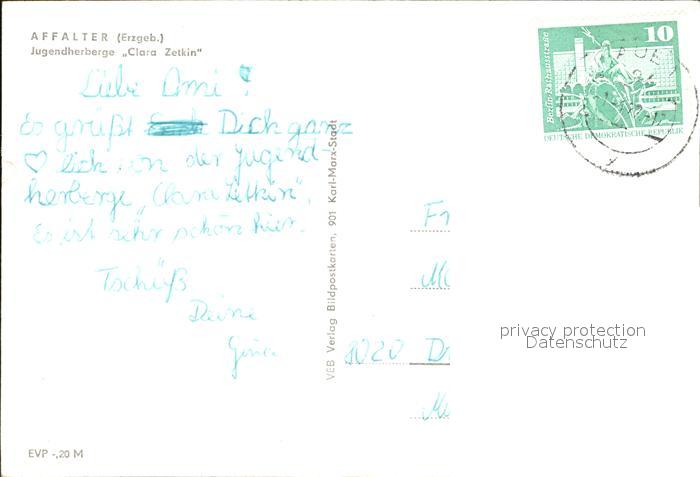 AFFALTER (Erzgeb.)
Jugendherberge „Clara Zetkin"
Liebe Omi!
Es grüßt Dich ganz
♡lich von der Jugend-
herberge „Clara Zetkin".
Es ist sehr schön hier.
Tschüß
Deine
VEB Verlag Bildpostkarten, 901 Karl-Marx-Stadt
EVP -,20 M
10
Berlin-Rathausstraße
DEUTSCHE DEMOKRATISCHE REPUBLIK
Fr
8020 Dr
privacy protection
Datenschutz